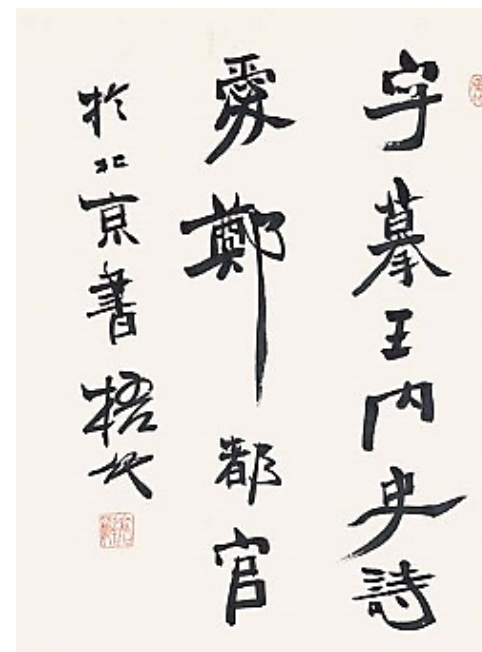 字摹王内史詩
愛鄭都官
於北京書梧